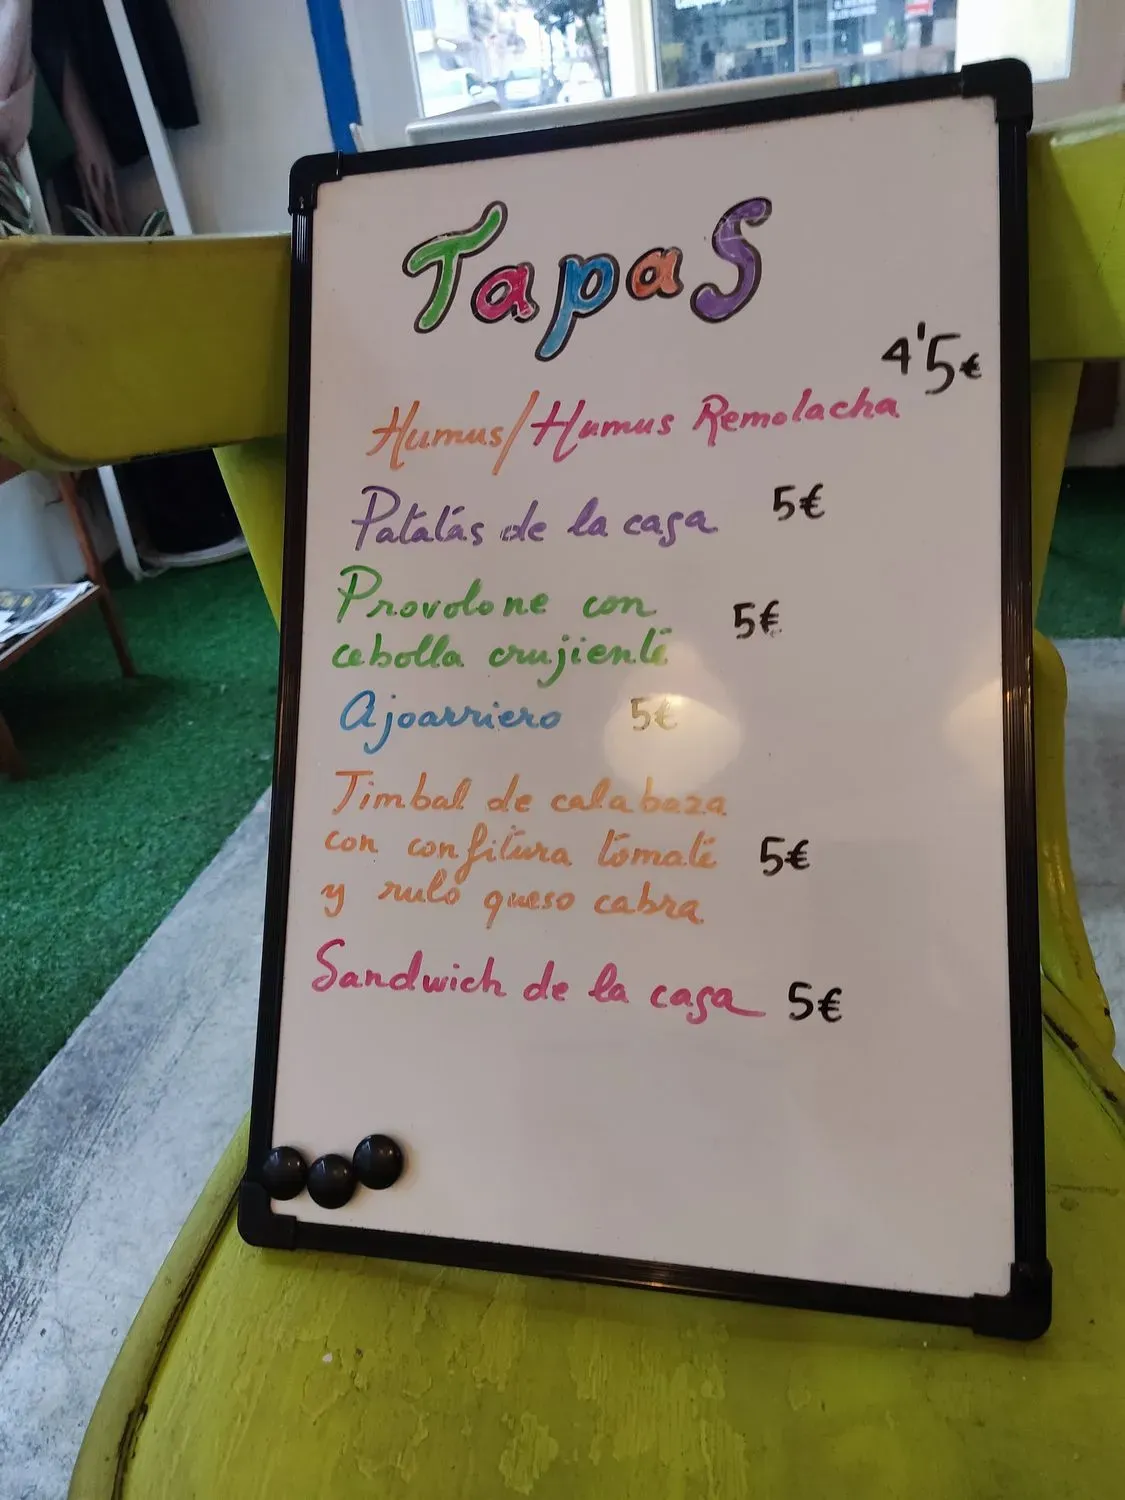 Tapas
4'5€
Humus/Humus Remolacha
Patatas de la casa 5€
Provolone con
cebolla crujiente 5€
Ajoarriero 5€
Timbal de calabaza
con confitura tomate 5€
y rulo queso cabra
Sandwich de la casa 5€